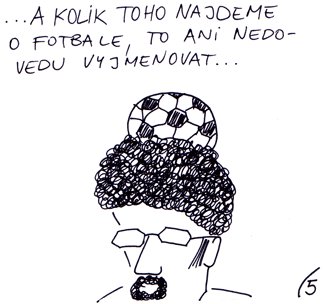 ...A KOLIK TOHO NAJDEME
O FOTBALE, TO ANI NEDO-
VEDU VYJMENOVAT...
(5